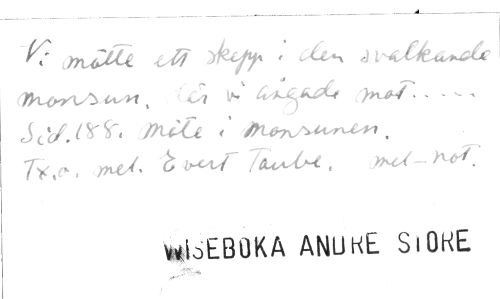 Vi mötte ett skepp i den svalkande
monsun, där vi ångade mot.....
Sid. 188. Möte i monsunen.
Tx.o. mel. Evert Taube. mel-not.
WISEBOKA ANDRE STORE